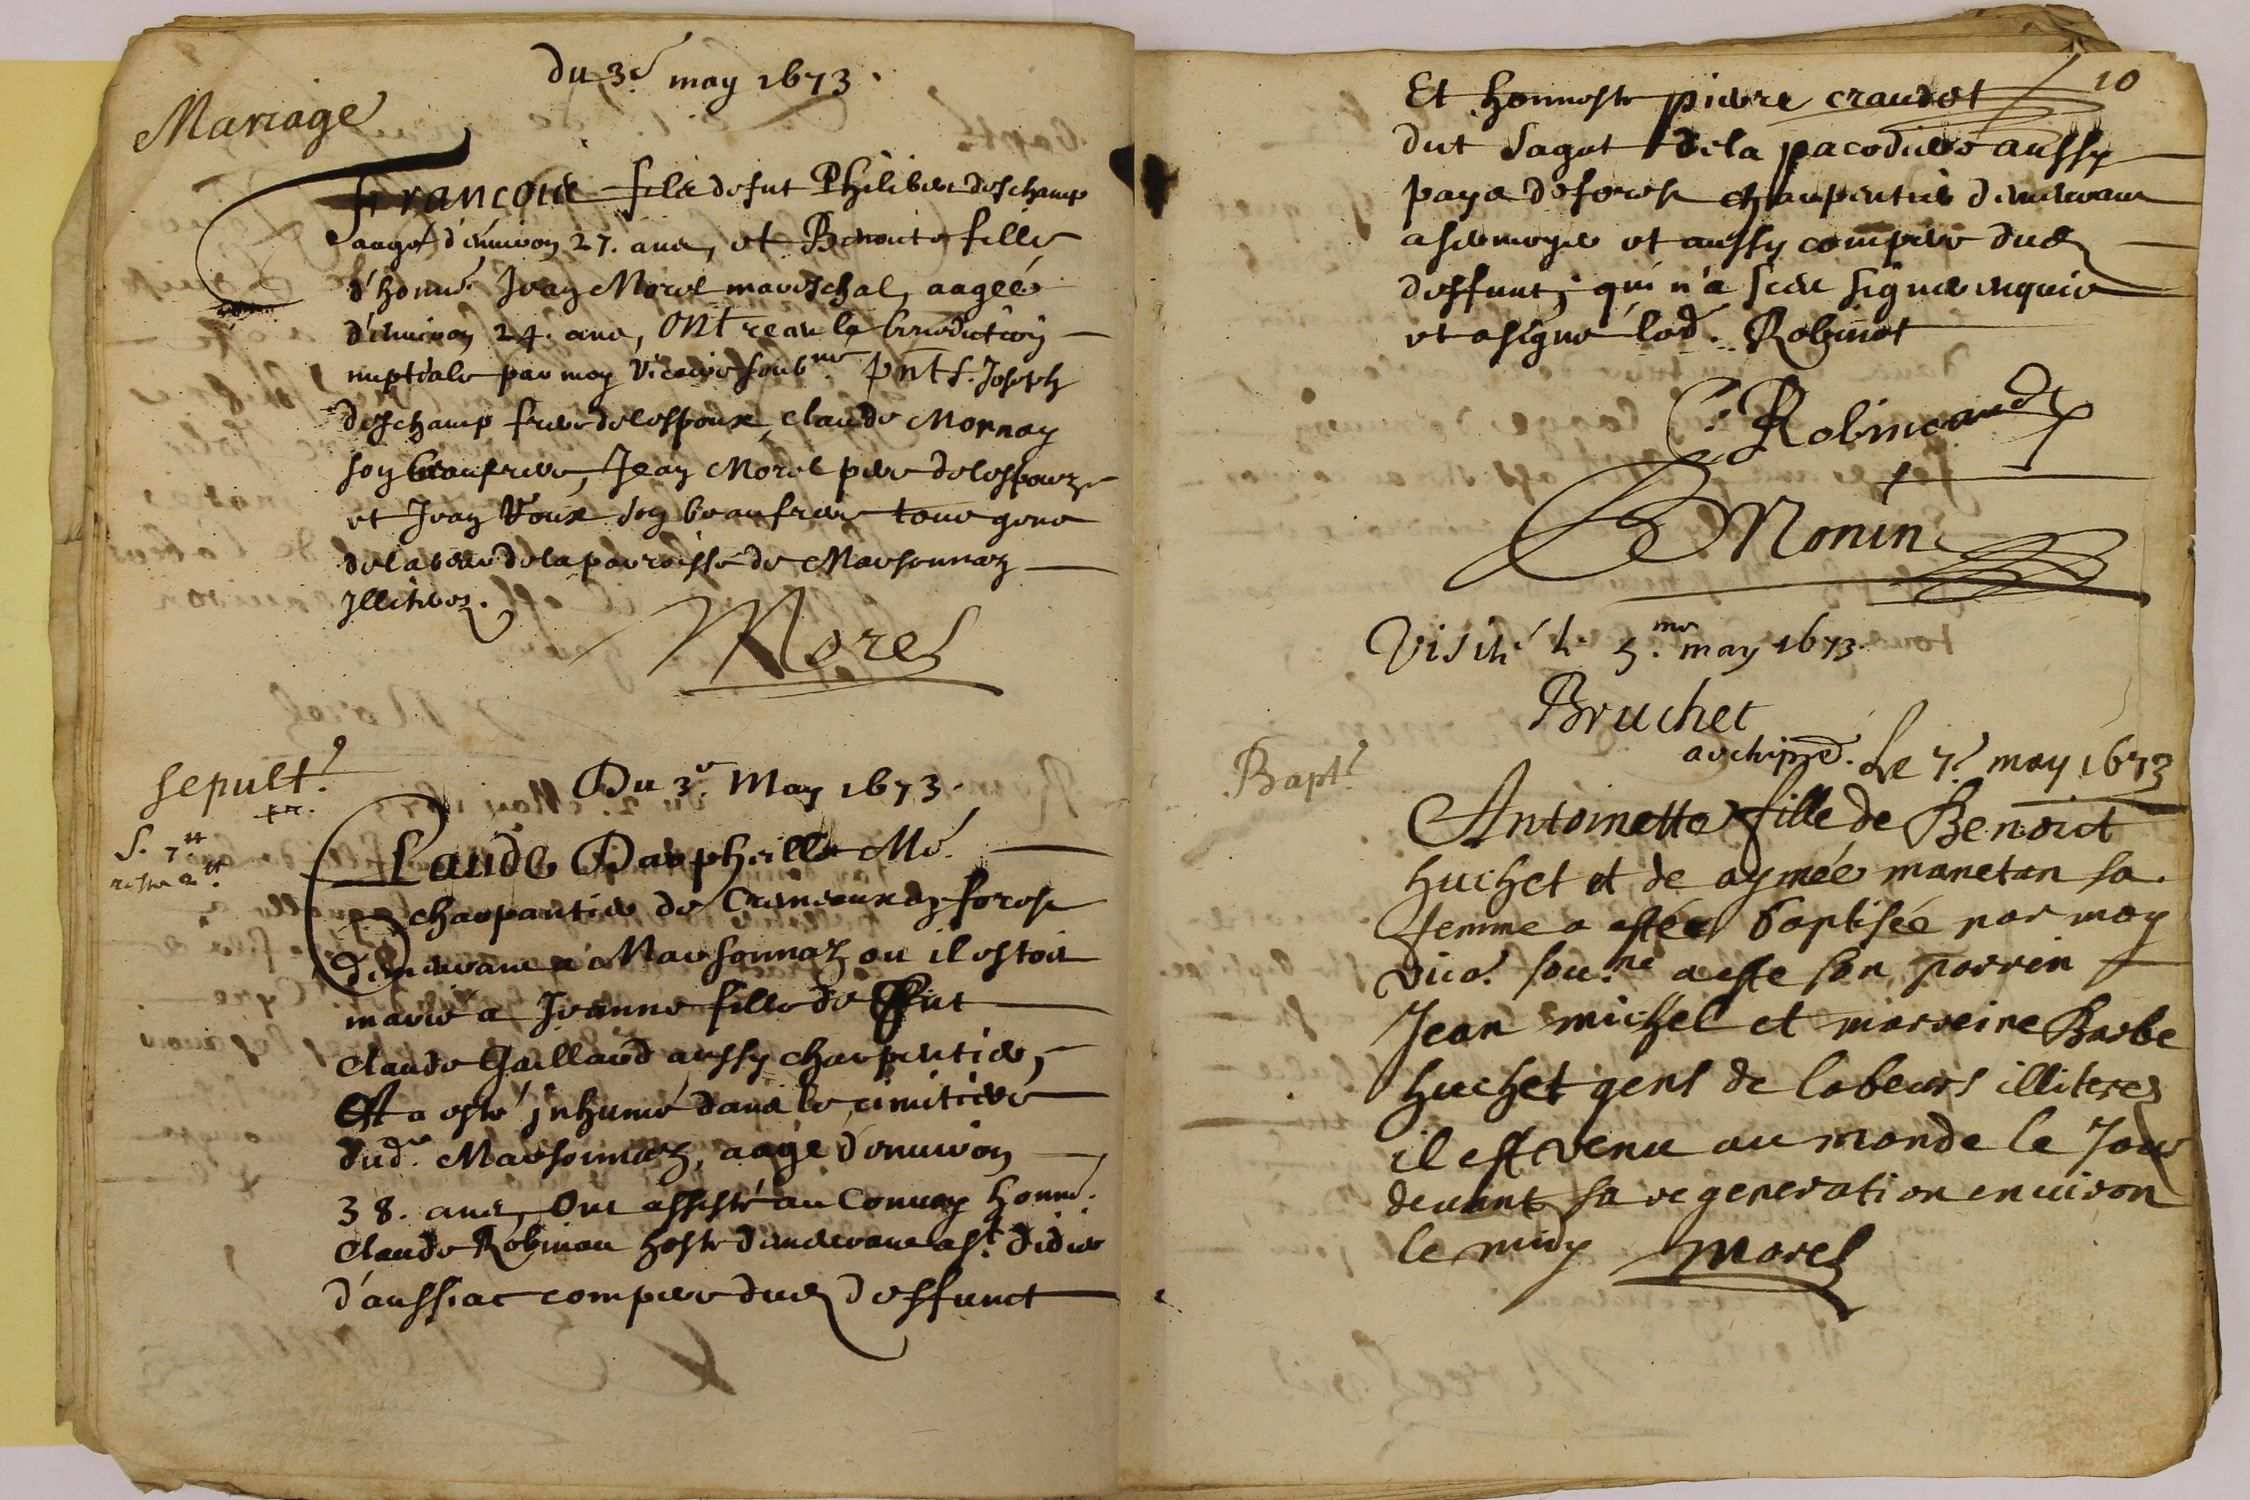 du 3.e may 1673.
Mariage
Francois fils de fut Philiber deschamp
aagé d'enuiron 27. ans, et Benoicte fille
d'honne. Jean Morel mareschal, aageé
d'enuiron 24. ans, ONt receu la benediction
nuptiale par moy vicaire soub.né pnts. Joseph
deschamp frere de lespoux, claude Mornay
son beaufrere, Jean Morel pere de lespouze
et Jean Roux son beaufrere tous gens
de labeur de la parroisse de Marsonnaz
Jlliterez.
Morel
Sepult.e
Du 3.e May 1673.
Claude Darpheille Me.
charpantier de Cremeaux en forest
demeurant a Marsonnaz ou il estoit
marié a Jeanne fille de fut
Claude Gaillard aussy charpentier,
Et a esté jnhumé dans le cimitiere
dud. Marsonnaz, aagé d'enuiron
38. ans, Ont assisté au Conuoy honne.
Claude Robinau hoste demeurant a St. didier
d'aussiat compere dud deffunct
10
Et honneste pierre craudet
dut Sagot de la pacodiere aussy
pays de forest charpentier demeurant
a et aussy compere dud
deffunt, qui n'a sceu signer enquis
et a signé led. Robinot
C. Robineaud
Monin
Visité le 5.me may 1673.
Bruchet
archipre.
Bapt.e
Le 7.e may 1673
Antoinette fille de Benoict
huchet et de aymée manetan sa
femme a estée baptisée par moy
vica. sou.né a esté son parrin
Jean michel et marreine Barbe
huchet gens de labeurs illiterez
il est venu au monde le Jour
deuant sa regeneration enuiron
le midy Morel